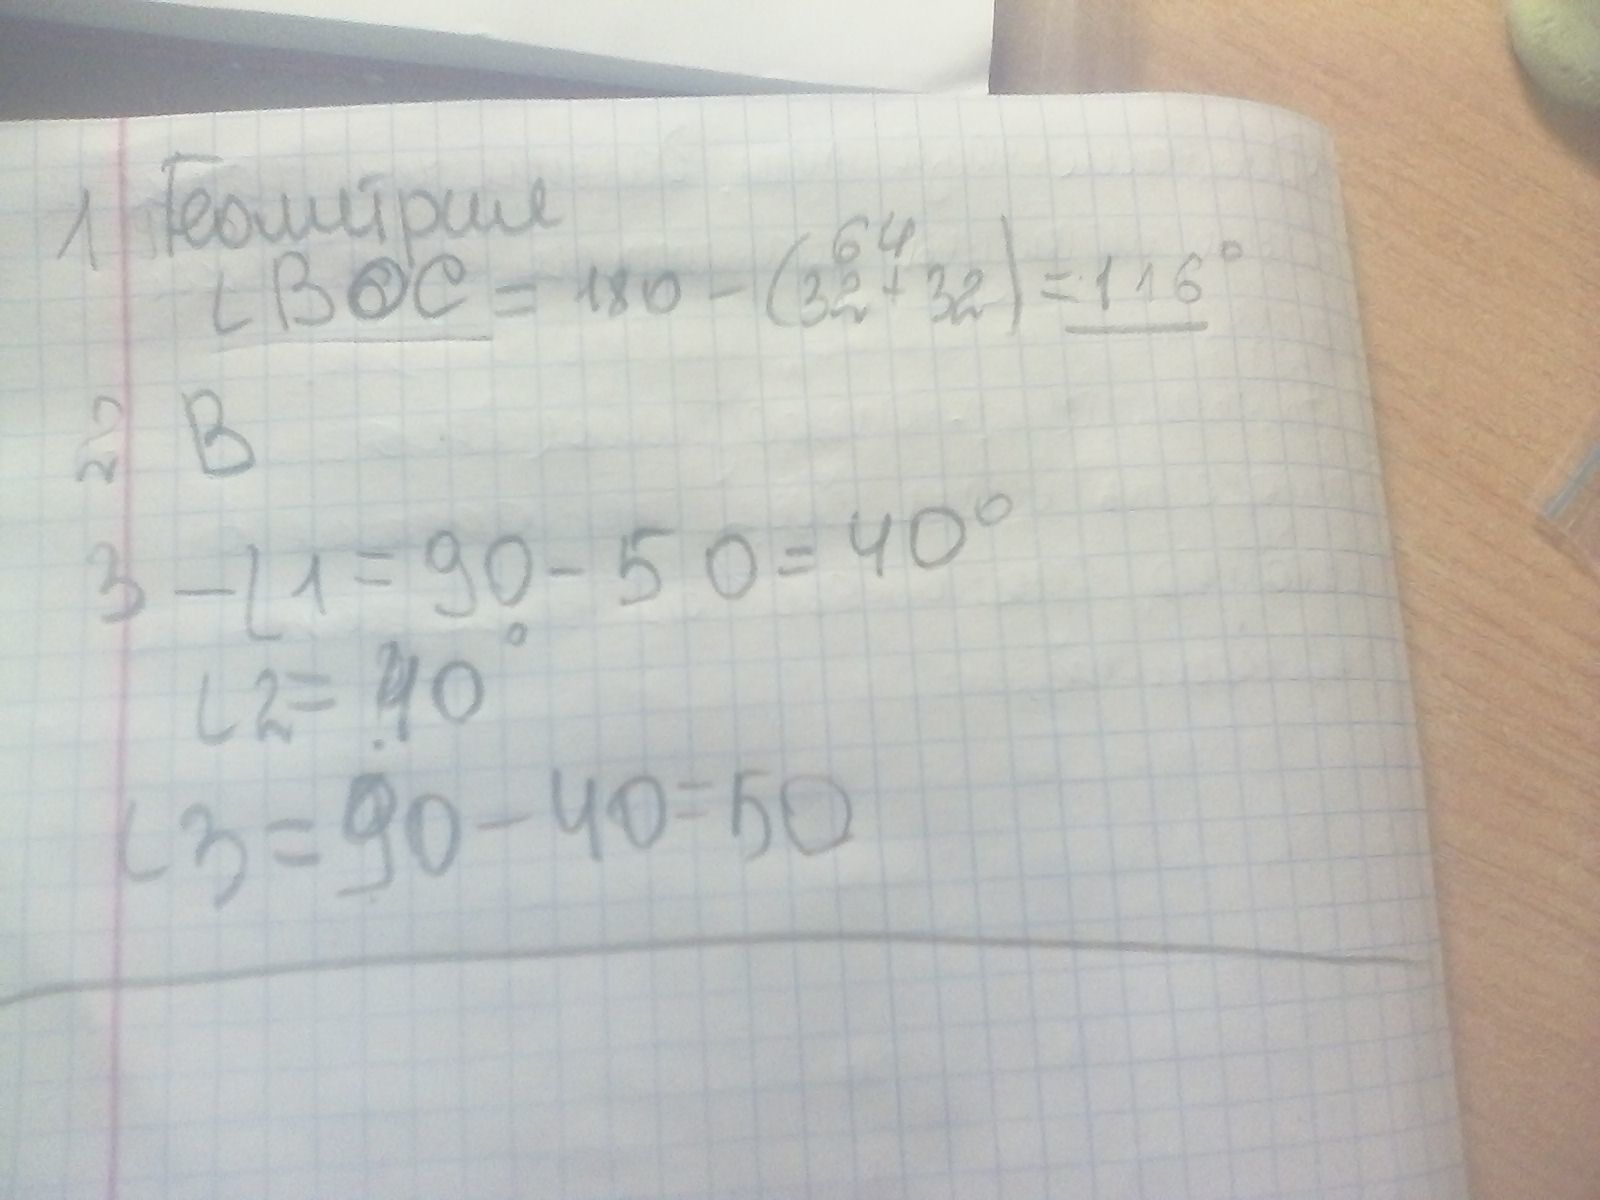 1 Геометрия
∠BOC = 180 - (32 + 32) = 116°
64
2 В
3 - ∠1 = 90 - 50 = 40°
∠2 = 40°
∠3 = 90 - 40 = 50